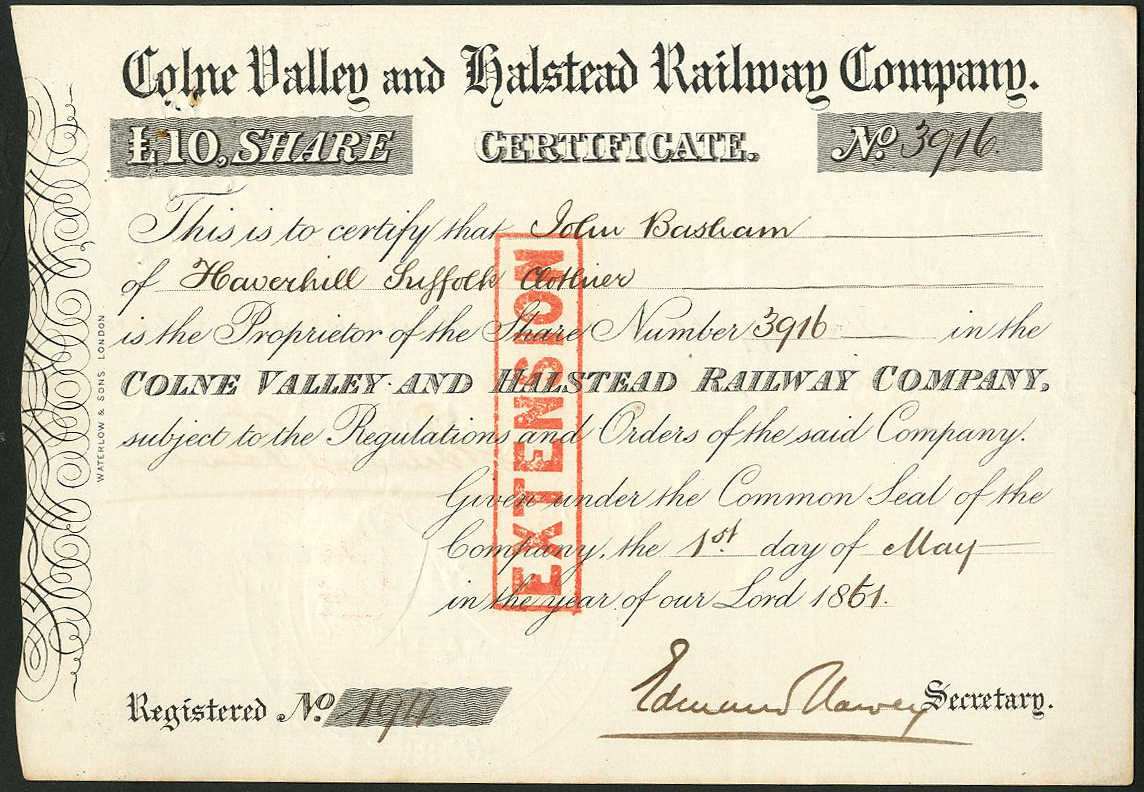 Colne Valley and Halstead Railway Company.
£10, SHARE CERTIFICATE. No. 3916.
This is to certify that John Basham
of Haverhill Suffolk Clothier
is the Proprietor of the Share Number 3916 in the
COLNE VALLEY AND HALSTEAD RAILWAY COMPANY,
subject to the Regulations and Orders of the said Company.
Given under the Common Seal of the
Company, the 1st day of May
in the year of our Lord 1861.
EXTENSION
WATERLOW & SONS LONDON
Registered No. 194
Edmund Harvey Secretary.